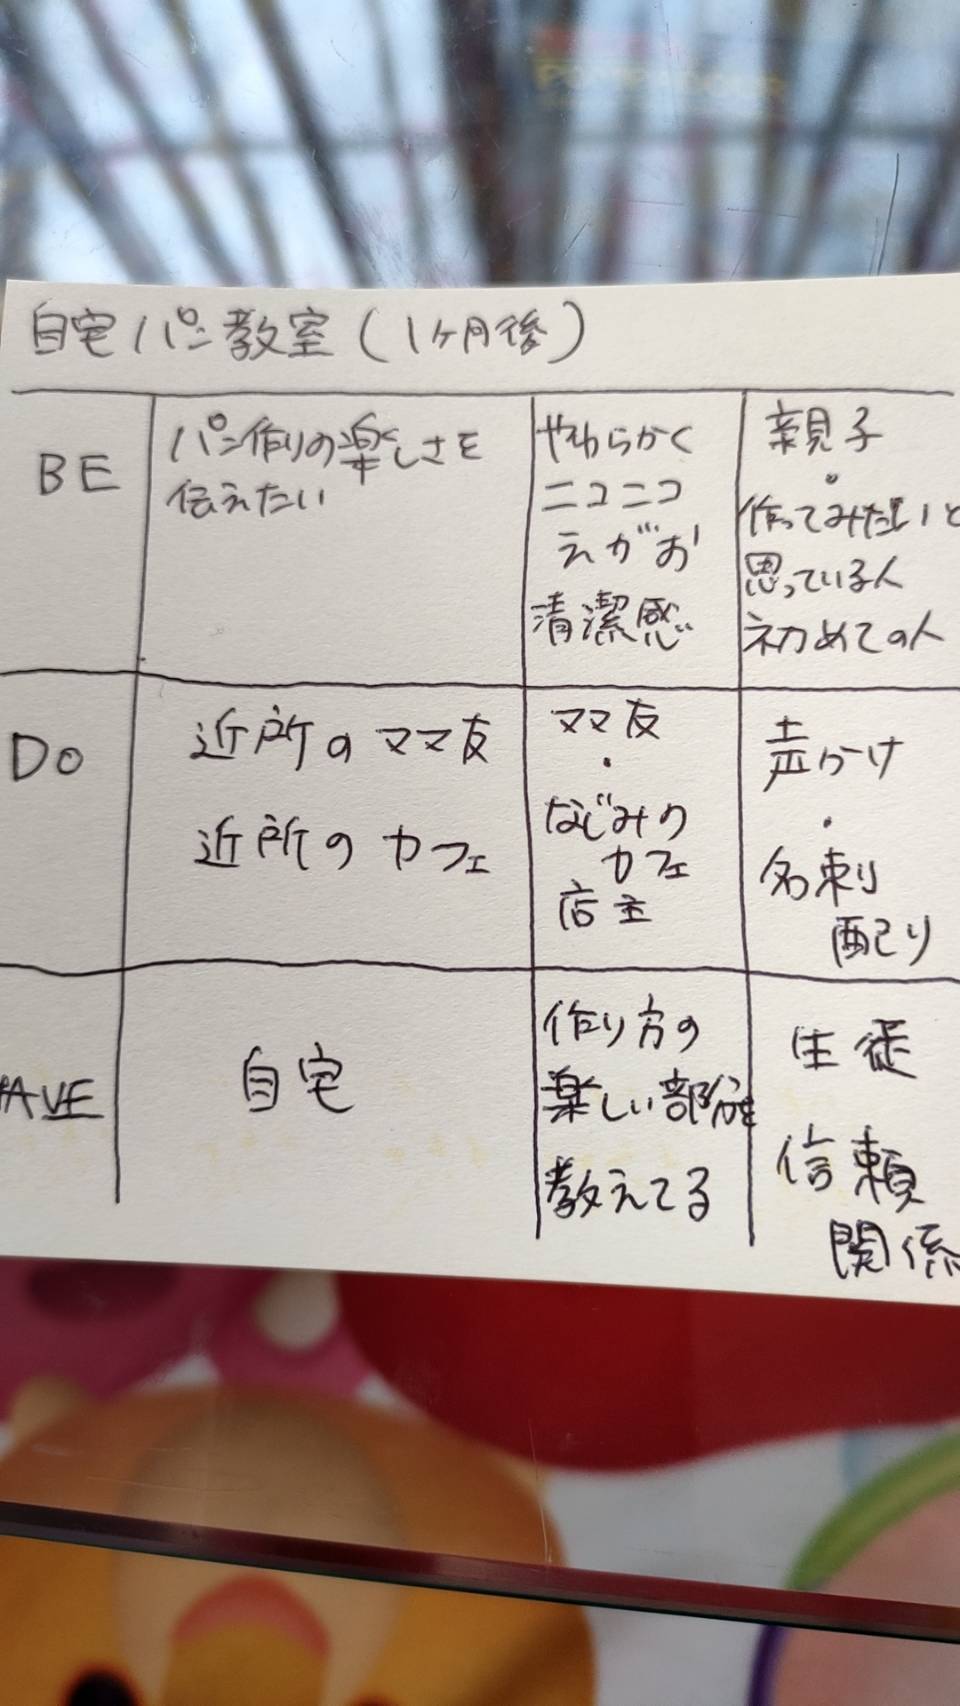 自宅パン教室(1ヶ月後)
BE
パン作りの楽しさを
伝えたい
やわらかく
ニコニコ
えがお
清潔感
親子
・
作ってみたいと
思っている人
初めての人
Do
近所のママ友
近所のカフェ
ママ友
・
なじみの
カフェ
店主
声かけ
・
名刺
配り
HAVE
自宅
作り方の
楽しい部分を
教えてる
生徒
信頼
関係